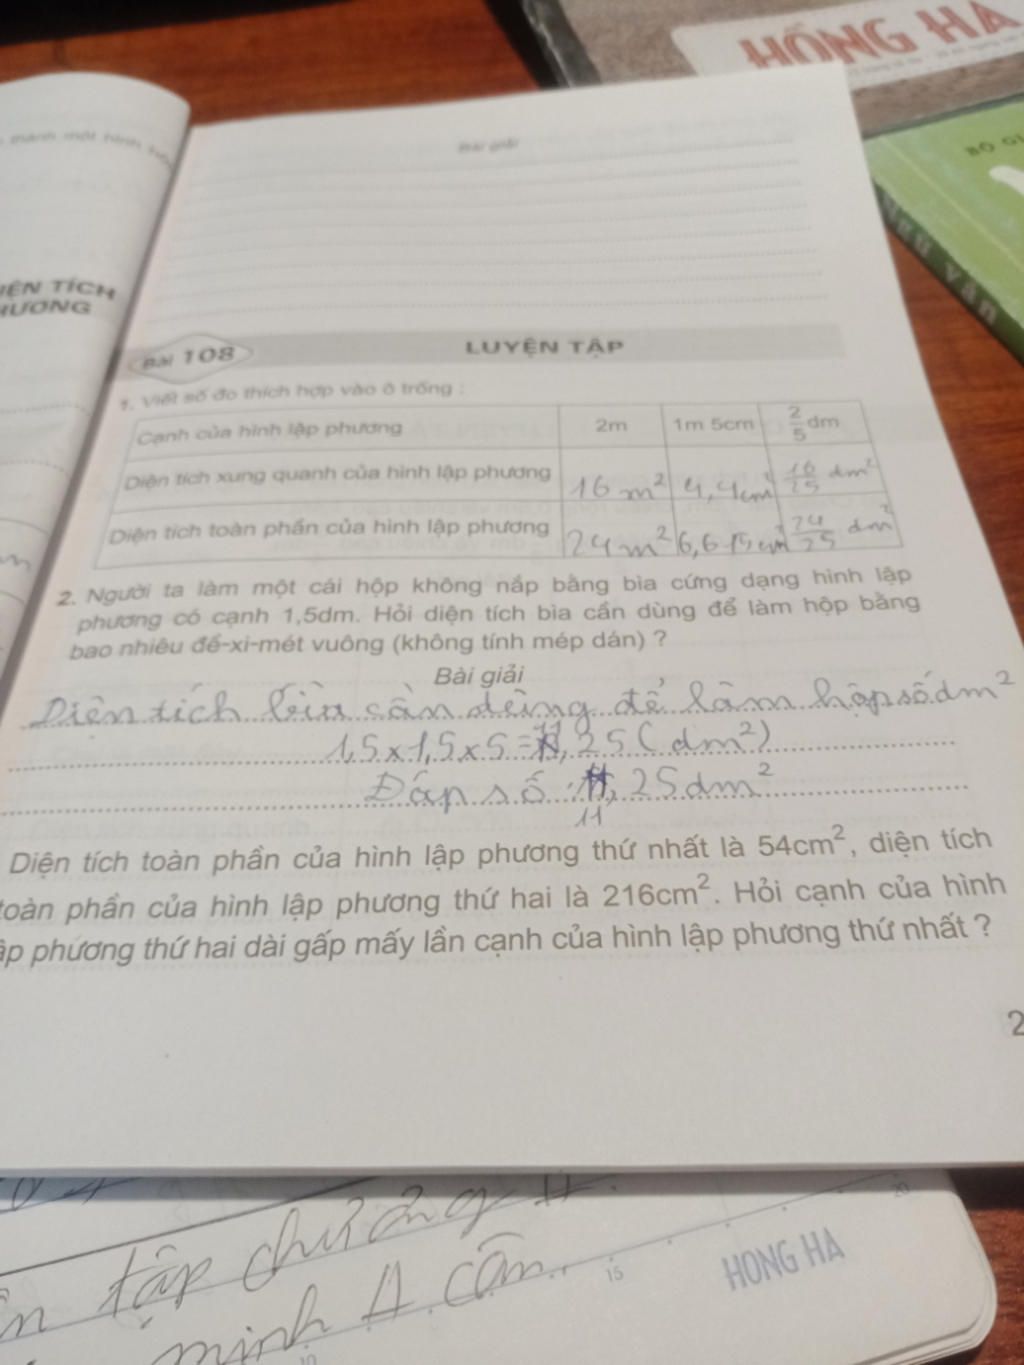 HỒNG HA
BỘ GI
NGỮ VĂN
thành một hình
Bài giải
IỆN TÍCH
HƯƠNG
Bài 108
LUYỆN TẬP
1. Viết số đo thích hợp vào ô trống :
Cạnh của hình lập phương 2m 1m 5cm 2/5 dm
Diện tích xung quanh của hình lập phương 16 m² 4,4cm² 16/25 dm²
Diện tích toàn phần của hình lập phương 24m² 6,615cm² 24/25 dm²
2. Người ta làm một cái hộp không nắp bằng bìa cứng dạng hình lập
phương có cạnh 1,5dm. Hỏi diện tích bìa cần dùng để làm hộp bằng
bao nhiêu đề-xi-mét vuông (không tính mép dán) ?
Bài giải
Diện tích bìa cần dùng để làm hộp số dm²
1,5 x 1,5 x 5 = 11,25 (dm²)
Đáp số : 11,25dm²
11
Diện tích toàn phần của hình lập phương thứ nhất là 54cm², diện tích
toàn phần của hình lập phương thứ hai là 216cm². Hỏi cạnh của hình
ập phương thứ hai dài gấp mấy lần cạnh của hình lập phương thứ nhất ?
2
tập chương II.
minh A cân
10 15 20
HONG HA